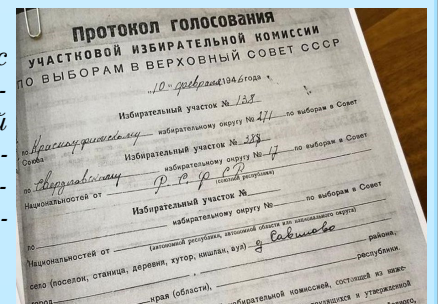 Протокол голосования
УЧАСТКОВОЙ ИЗБИРАТЕЛЬНОЙ КОМИССИИ
ПО ВЫБОРАМ В ВЕРХОВНЫЙ СОВЕТ СССР
"10" февраля 1946 года
Избирательный участок № 138
по Красноуфимскому избирательному округу № 271 по выборам в Совет
Союза
Избирательный участок № 388
по Свердловскому избирательному округу № 17 по выборам в Совет
Национальностей от Р.С.Ф.С.Р.
(союзная республика)
Избирательный участок №
по избирательному округу № по выборам в Совет
Национальностей от
(автономной республики, автономной области или национального округа)
село (поселок, станица, деревня, хутор, кишлак, аул) д. Савиново
района,
город края (области), республики.
избирательной комиссией, состоящей из ниже-
и утвержденной